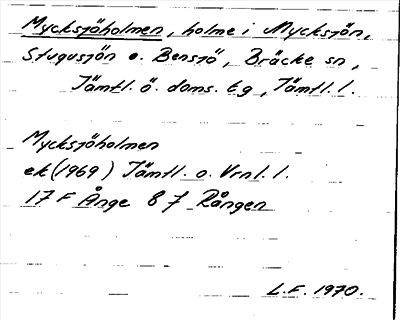 Mycksjöholmen, holme i Mycksjön,
Stugusjön o. Bensjö, Bräcke sn,
Jämtl. ö. doms. tg, Jämtl. l.
Mycksjöholmen
ek (1969) Jämtl. o. Vrnl. l.
17 F Ånge 8 f Rången
L.F. 1970.